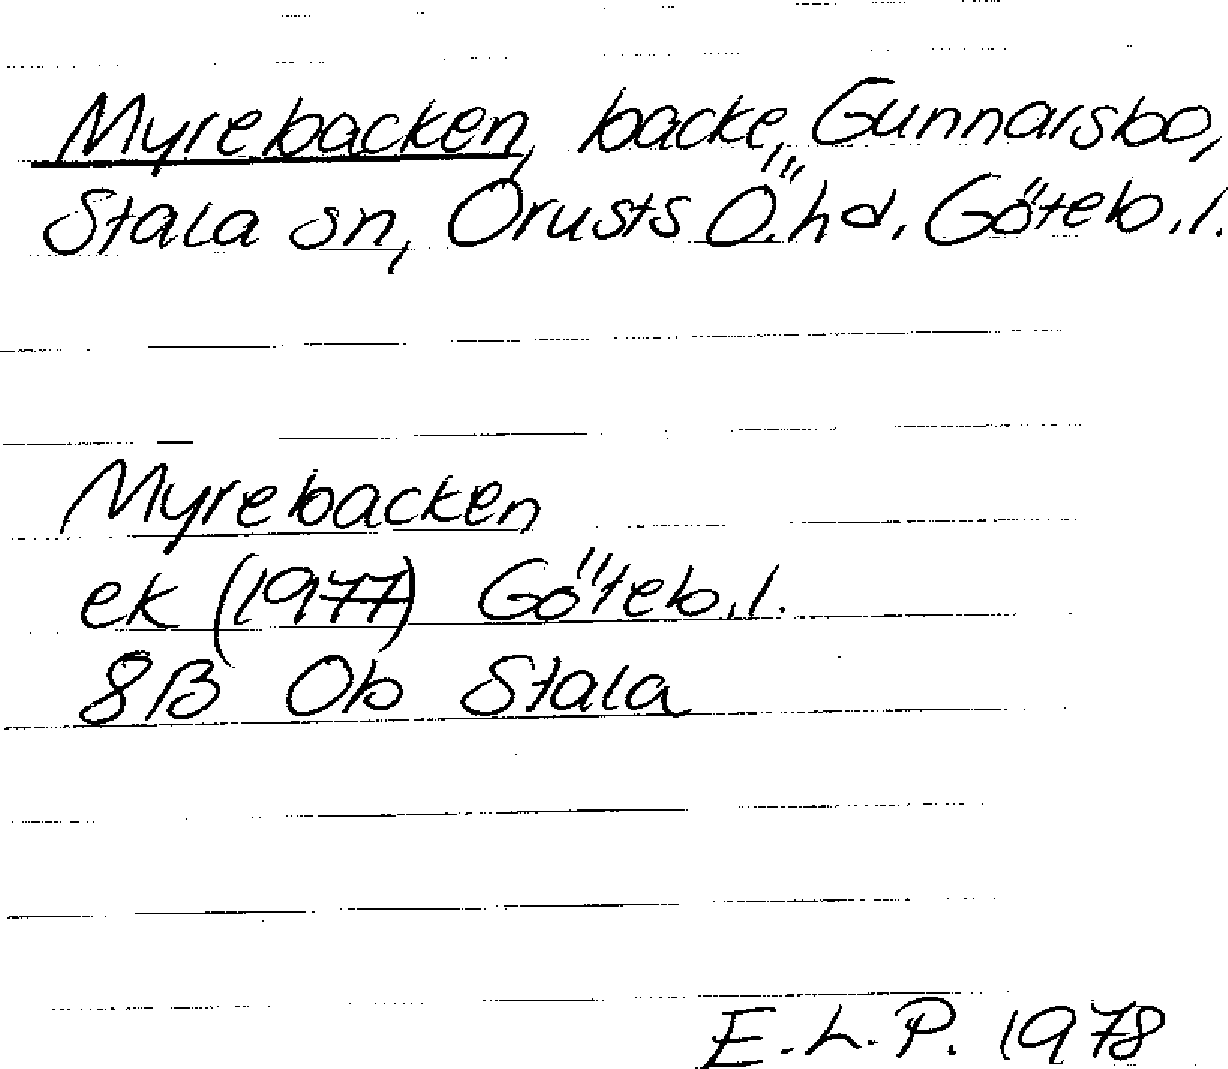 Myrebacken, backe, Gunnarsbo,
Stala sn, Orusts Ö. hd, Göteb. l.
Myrebacken
ek (1977) Göteb. l.
8B Ob Stala
E. L. P. 1978